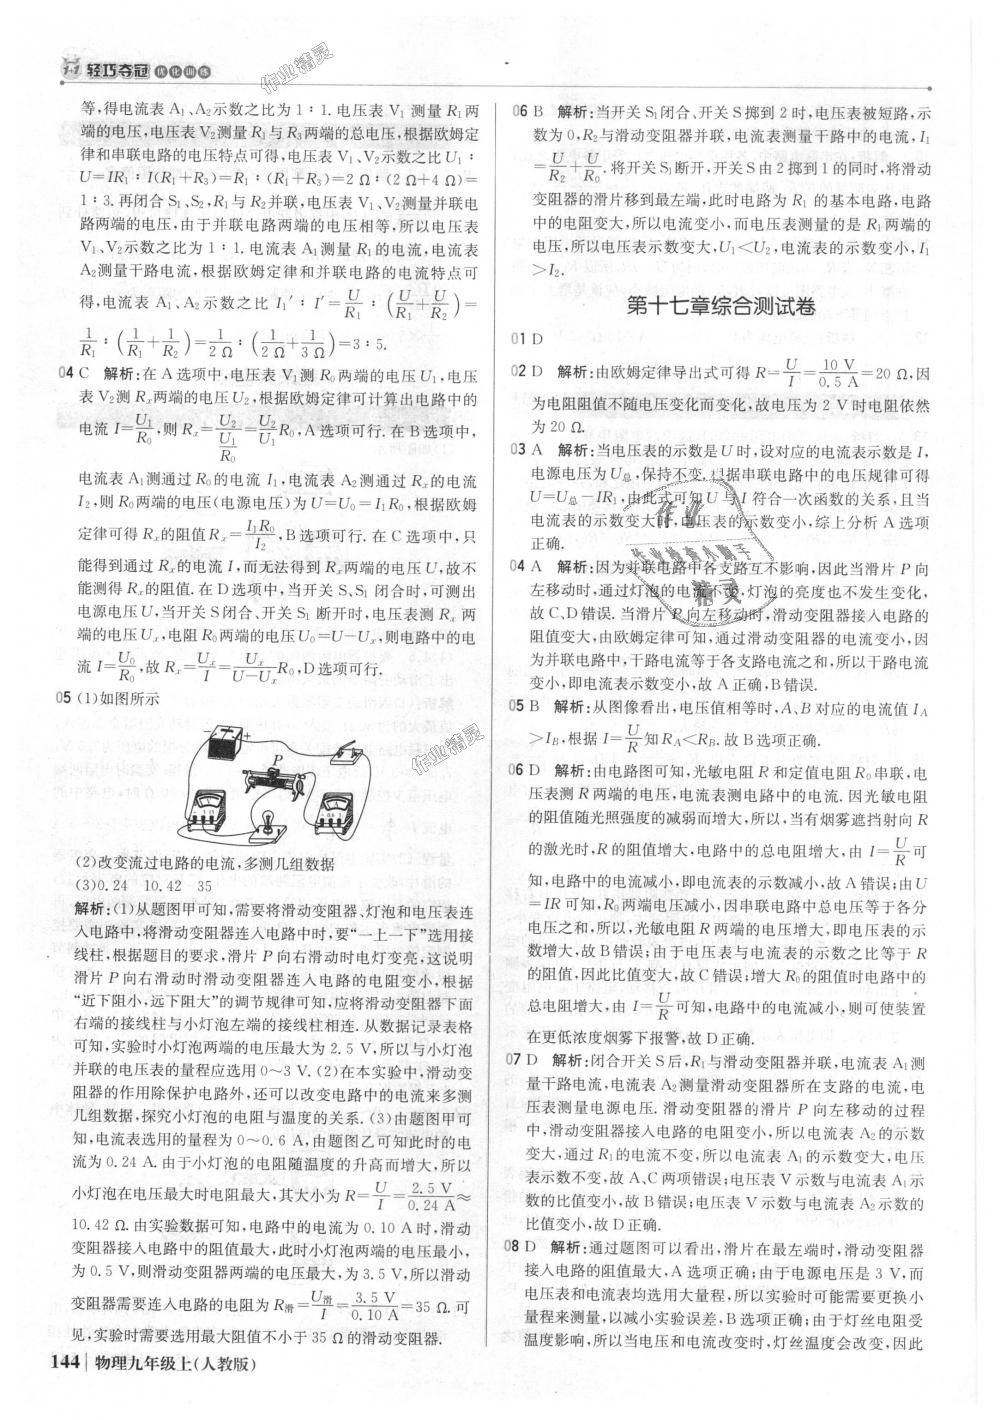 1+1 轻巧夺冠 优化训练
作业精灵
等,得电流表 A₁、A₂示数之比为 1∶1. 电压表 V₁ 测量 R₁两
端的电压,电压表 V₂测量 R₁与 R₃两端的总电压,根据欧姆定
律和串联电路的电压特点可得,电压表 V₁、V₂示数之比 U₁∶
U=IR₁∶I(R₁+R₃)=R₁∶(R₁+R₃)=2 Ω∶(2 Ω+4 Ω)=
1∶3. 再闭合 S₁、S₂,R₁与 R₂并联,电压表 V₁、V₂测量并联电
路两端的电压,由于并联电路两端的电压相等,所以电压表
V₁、V₂示数之比为 1∶1. 电流表 A₁测量 R₁的电流,电流表
A₂测量干路电流,根据欧姆定律和并联电路的电流特点可
得,电流表 A₁、A₂示数之比 I₁′∶I′=U/R₁∶(U/R₁+U/R₂)=
1/R₁∶(1/R₁+1/R₂)=1/2 Ω∶(1/2 Ω+1/3 Ω)=3∶5.
04 C 解析:在 A 选项中,电压表 V₁测 R₀两端的电压 U₁,电压
表 V₂测 Rₓ两端的电压 U₂,根据欧姆定律可计算出电路中的
电流 I=U₁/R₀,则 Rₓ=U₂/(U₁/R₀)=(U₂/U₁)R₀,A 选项可行. 在 B 选项中,
电流表 A₁测通过 R₀的电流 I₁,电流表 A₂测通过 Rₓ的电流
I₂,则 R₀两端的电压(电源电压)为 U=U₀=I₁R₀,根据欧姆
定律可得 Rₓ的阻值 Rₓ=I₁R₀/I₂,B 选项可行. 在 C 选项中,只
能得到通过 Rₓ的电流 I,而无法得到 Rₓ两端的电压 U,故不
能测得 Rₓ的阻值. 在 D 选项中,当开关 S、S₁闭合时,可测出
电源电压 U,当开关 S 闭合、开关 S₁ 断开时,电压表测 Rₓ 两
端的电压 Uₓ,电阻 R₀两端的电压 U₀=U−Uₓ,则电路中的电
流 I=U₀/R₀,故 Rₓ=Uₓ/I=Uₓ/(U−Uₓ)R₀,D 选项可行.
05 (1)如图所示
作业精灵
(2)改变流过电路的电流,多测几组数据
(3)0.24 10.42 35
解析:(1)从题图甲可知,需要将滑动变阻器、灯泡和电压表连
入电路中,将滑动变阻器连入电路中时,要“一上一下”选用接
线柱,根据题目的要求,滑片 P 向右滑动时电灯变亮,这说明
滑片 P 向右滑动时滑动变阻器连入电路的电阻变小,根据
“近下阻小,远下阻大”的调节规律可知,应将滑动变阻器下面
右端的接线柱与小灯泡左端的接线柱相连. 从数据记录表格
可知,实验时小灯泡两端的电压最大为 2.5 V,所以与小灯泡
并联的电压表的量程应选用 0～3 V. (2)在本实验中,滑动变
阻器的作用除保护电路外,还可以改变电路中的电流来多测
几组数据,探究小灯泡的电阻与温度的关系. (3)由题图甲可
知,电流表选用的量程为 0～0.6 A,由题图乙可知此时的电
流为 0.24 A. 由于小灯泡的电阻随温度的升高而增大,所以
小灯泡在电压最大时电阻最大,其大小为 R=U/I=2.5 V/0.24 A≈
10.42 Ω. 由实验数据可知,电路中的电流为 0.10 A时,滑动
变阻器接入电路中的阻值最大,此时小灯泡两端的电压最小,
为 0.5 V,则滑动变阻器两端的电压最大,为 3.5 V,所以滑动
变阻器需要连入电路的电阻为 R滑=U滑/I=3.5 V/0.10 A=35 Ω. 可
见,实验时需要选用最大阻值不小于 35 Ω的滑动变阻器.
06 B 解析:当开关 S₁闭合、开关 S 掷到 2 时,电压表被短路,示
数为 0,R₂与滑动变阻器并联,电流表测量干路中的电流,I₁
=U/R₂+U/R₀. 将开关 S₁断开,开关 S 由 2 掷到 1 的同时,将滑动
变阻器的滑片移到最左端,此时电路为 R₁ 的基本电路,电路
中的电阻变大,所以电流变小,而电压表测量的是 R₁两端的
电压,所以电压表示数变大,U₁<U₂,电流表的示数变小,I₁
>I₂.
第十七章综合测试卷
01 D
02 D 解析:由欧姆定律导出式可得 R=U/I=10 V/0.5 A=20 Ω,因
为电阻阻值不随电压变化而变化,故电压为 2 V时电阻依然
为 20 Ω.
03 A 解析:当电压表的示数是 U 时,设对应的电流表示数是 I,
电源电压为 U总,保持不变. 根据串联电路中的电压规律可得
U=U总−IR₁,由此式可知 U 与 I 符合一次函数的关系,且当
电流表的示数变大时,电压表的示数变小,综上分析 A 选项
正确.
04 A 解析:因为并联电路中各支路互不影响,因此当滑片 P 向
左移动时,通过灯泡的电流不变,灯泡的亮度也不发生变化,
故 C、D 错误. 当滑片 P 向左移动时,滑动变阻器接入电路的
阻值变大,由欧姆定律可知,通过滑动变阻器的电流变小,因
为并联电路中,干路电流等于各支路电流之和,所以干路电流
变小,即电流表示数变小,故 A 正确,B 错误.
05 B 解析:从图像看出,电压值相等时,A、B 对应的电流值 I_A
>I_B,根据 I=U/R知 R_A<R_B. 故 B 选项正确.
06 D 解析:由电路图可知,光敏电阻 R 和定值电阻 R₀串联,电
压表测 R 两端的电压,电流表测电路中的电流. 因光敏电阻
的阻值随光照强度的减弱而增大,所以,当有烟雾遮挡射向 R
的激光时,R 的阻值增大,电路中的总电阻增大,由 I=U/R可
知,电路中的电流减小,即电流表的示数减小,故 A 错误;由 U
=IR 可知,R₀两端电压减小,因串联电路中总电压等于各分
电压之和,所以,光敏电阻 R 两端的电压增大,即电压表的示
数增大,故 B 错误;由于电压表与电流表的示数之比等于 R
的阻值,因此比值变大,故 C 错误;增大 R₀的阻值时电路中的
总电阻增大,由 I=U/R可知,电路中的电流减小,则可使装置
在更低浓度烟雾下报警,故 D 正确.
07 D 解析:闭合开关 S 后,R₁与滑动变阻器并联,电流表 A₁测
量干路电流,电流表 A₂测量滑动变阻器所在支路的电流,电
压表测量电源电压. 滑动变阻器的滑片 P 向左移动的过程
中,滑动变阻器接入电路的电阻变小,所以电流表 A₂的示数
变大,通过 R₁的电流不变,所以电流表 A₁的示数变大,电压
表示数不变,故 A、C 两项错误;电压表 V 示数与电流表 A₁示
数的比值变小,故 B 错误;电压表 V 示数与电流表 A₂示数的
比值变小,故 D 正确.
08 D 解析:通过题图可以看出,滑片在最左端时,滑动变阻器
接入电路的阻值最大,A 选项正确;由于电源电压是 3 V,而
电压表和电流表均选用大量程,所以实验时可能需要更换小
量程来测量,以减小实验误差,B 选项正确;由于灯丝电阻受
温度影响,所以当电压和电流改变时,灯丝温度会改变,因此
作业
作业检查小助手
精灵
144 物理九年级上(人教版)